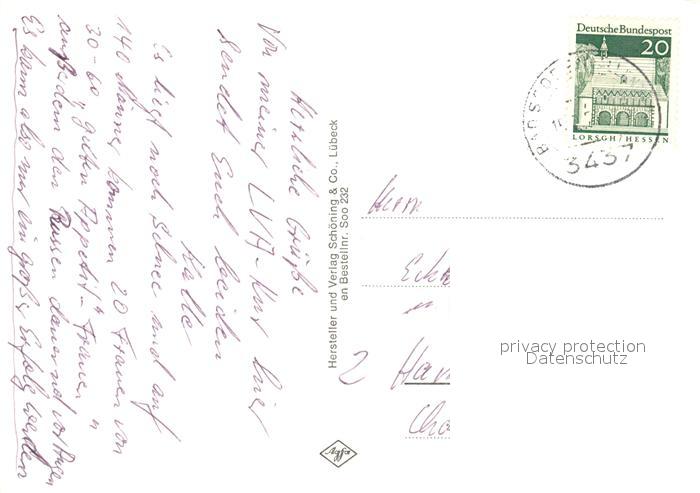 Herzliche Grüße
Von meiner LVA-Kur hier
sendet Euch beiden
Kalle
Es liegt noch Schnee und auf
140 Männer kommen 20 Frauen von
30-60, "guten Appetit" Frauen "
außerdem den Busen dauernd vor Augen
Es kann also nur ein großer Erfolg werden
Hersteller und Verlag Schöning & Co., Lübeck
en Bestellnr. Soo 232
Agfa
Deutsche Bundespost
20
LORSCH/HESSEN
3437
Herrn
Eck
2 Ha
privacy protection
Datenschutz